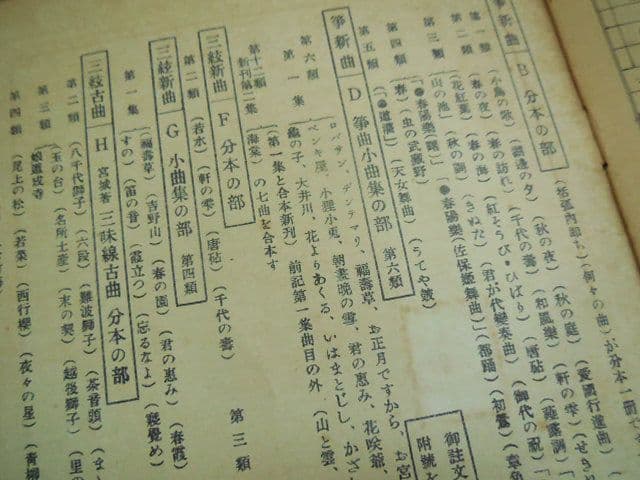 箏新曲 B 分本の部
(括弧內卽ち)(何々の曲)が分本一冊で
第一類 (小鳥の歌)
(春の夜)
(春の訪れ)
(千代の壽)
(秋の夜)
(秋の庭)
(愛國行進曲)
第二類 (花紅葉)
(春の海)
(紅そうび・ひばり)
(唐砧)
(和風樂)
(軒の雫)
第三類 (山の池)
(秋の調)
(きぬた)
(君が代變奏曲)
(御代の祝)
「●春陽樂(曙)」
「●春陽樂(佐保姬舞曲)」
(都踊)
(初鶯)
第四類 (春)
(虫の武藏野)
第五類 「●道灌」
(天女舞曲)
(うてや鼓)
箏新曲 D 箏曲小曲集の部 第六類
第六類
ロバサン、デンデマリ、福壽草、お正月ですから、お宮
第一集
ペンキ屋、小狸小兎、朝晝晩の雪、君の惠み、花咲爺、
の子、大井川、花よりあくる、いはまとじし、かざ
(第一集と合本新刊) 前記第一集曲目の外 (山と雲、
第十二類
新刊第二集
(海棠) の七曲を合本す
三絃新曲 F 分本の部 第三類
第二類 (若水)
(軒の雫)
(唐砧)
(千代の壽)
三絃新曲 G 小曲集の部 第四類
第一集
(福壽草)(吉野山)
(春の園)
(君の惠み)
(春霞)
(すの)
(笛の音)
(霞立つ)
(忘るなよ)
(寢覺め)
三絃古曲 H 宮城著 三味線古曲 分本の部
第一類
(八千代獅子)
(六段)
(難波獅子)
(茶音頭)
第二類
(玉の台)
(名所土產)
(末の契)
(越後獅子)
(里の
第三類
娘道成寺
第四類
(尾上の松)
(若菜)
(西行櫻)
(夜々の星)
(靑柳
御註文
附號を